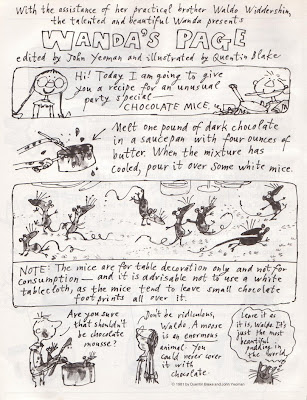 With the assistance of her practical brother Waldo Widdershin,
the talented and beautiful Wanda presents
WANDA'S PAGE
edited by John Yeoman and illustrated by Quentin Blake
Hi! Today I am going to give
you a recipe for an unusual
party special
CHOCOLATE MICE.
Melt one pound of dark chocolate
in a saucepan with four ounces of
butter. When the mixture has
cooled, pour it over some white mice.
NOTE: The mice are for table decoration only and not for
consumption — and it is advisable not to use a white
tablecloth, as the mice tend to leave small chocolate
footprints all over it.
Are you sure
that shouldn't
be chocolate
mousse?
Don't be ridiculous,
Waldo. A moose
is an enormous
animal. You
could never cover
it with
chocolate.
Leave it as
it is, Waldo. It's
just the most
beautiful
pudding in
the world.
© 1981 by Quentin Blake and John Yeoman